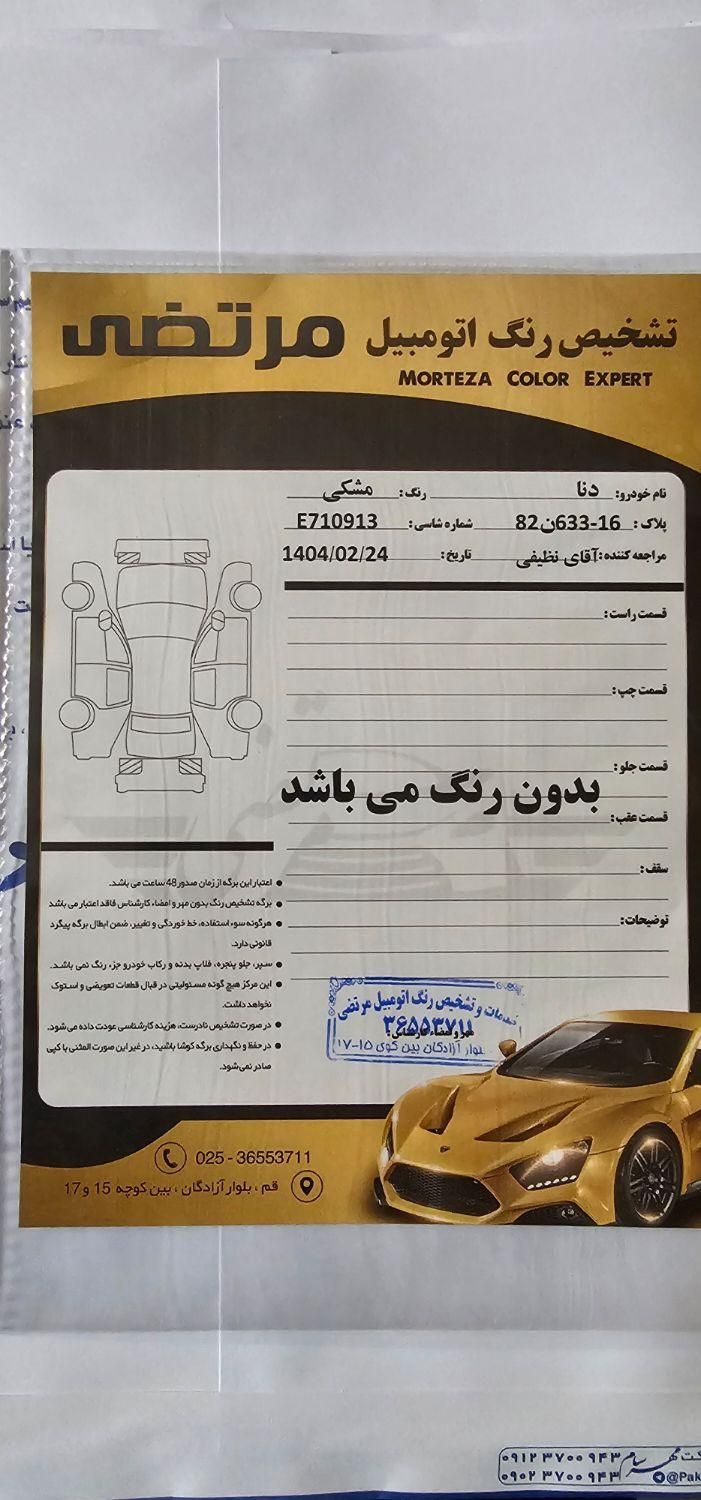 تشخیص رنگ اتومبیل مرتضی
MORTEZA COLOR EXPERT
نام خودرو: دنا رنگ: مشکی
پلاک: 16-633ن82 شماره شاسی: E710913
مراجعه کننده: آقای نظیفی تاریخ: 1404/02/24
قسمت راست:
قسمت چپ:
قسمت جلو:
بدون رنگ می باشد
قسمت عقب:
سقف:
توضیحات:
● اعتبار این برگه از زمان صدور 48 ساعت می باشد.
● برگه تشخیص رنگ بدون مهر و امضاء کارشناس فاقد اعتبار می باشد
● هرگونه سوء استفاده، خط خوردگی و تغییر، ضمن ابطال برگه پیگرد
قانونی دارد.
● سپر، جلو پنجره، فلاپ بدنه و رکاب خودرو جزء رنگ نمی باشد.
● این مرکز هیچ گونه مسئولیتی در قبال قطعات تعویضی و استوک
نخواهد داشت.
● در صورت تشخیص نادرست، هزینه کارشناسی عودت داده می شود.
● در حفظ و نگهداری برگه کوشا باشید، در غیر این صورت المثنی یا کپی
صادر نمی شود.
خدمات و تشخیص رنگ اتومبیل مرتضی
۳۶۵۵۳۷۱۱
مهر و امضاء کارشناس:
بلوار آزادگان بین کوی ۱۵-۱۷
025 - 36553711
قم ، بلوار آزادگان ، بین کوچه 15 و 17
۰۹۱۲ ۳۷۰۰ ۹۴۳
۰۹۰۲ ۳۷۰۰ ۹۴۳
@Pak